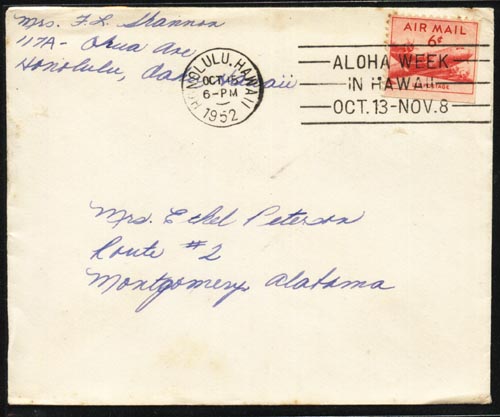 Mrs. F. L. Shannon
117A- Ohua Ave
Honolulu, Oahu Hawaii
HONOLULU, HAWAII
OCT 15
6-PM
1952
AIR MAIL
6¢
POSTAGE
ALOHA WEEK
IN HAWAII
OCT. 13-NOV. 8
Mrs. Ethel Peterson
Route #2
Montgomery, Alabama